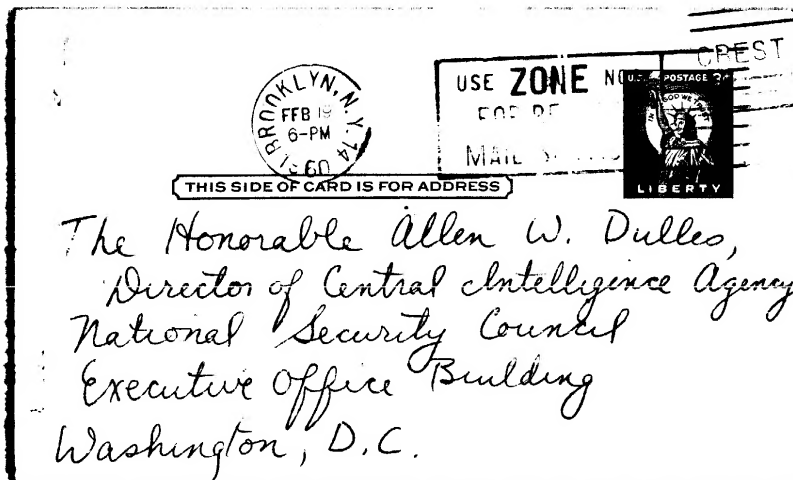 CREST
BROOKLYN, N.Y. 14
FEB 19
6-PM
60
USE ZONE NO
MAIL
U.S. POSTAGE 3¢
IN GOD WE TRUST
LIBERTY
THIS SIDE OF CARD IS FOR ADDRESS
The Honorable Allen W. Dulles,
Director of Central Intelligence Agency
National Security Council
Executive Office Building
Washington, D.C.